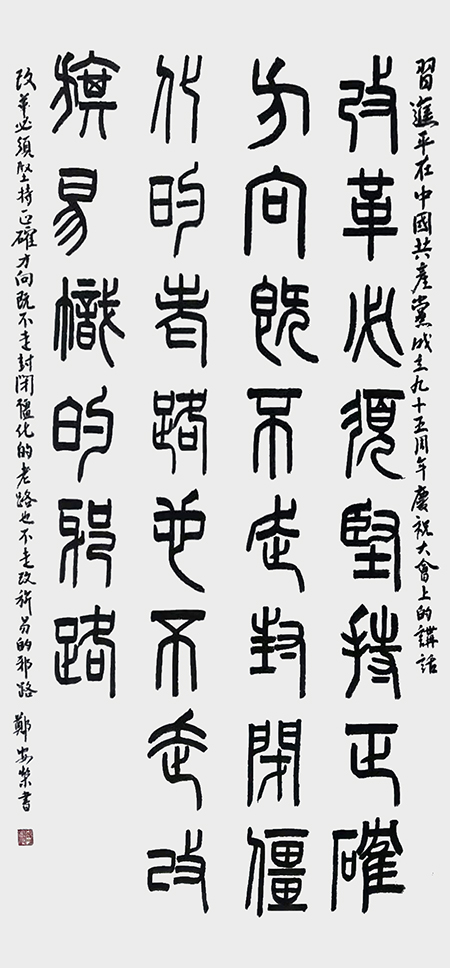 習進平在中國共產黨成立九十五周年慶祝大會上的講話
改革必須堅持正確
方向既不走封閉僵
化的老路也不走改
旗易幟的邪路
改革必須堅持正確方向既不走封閉僵化的老路也不走改旂易的邪路 鄭安榮書